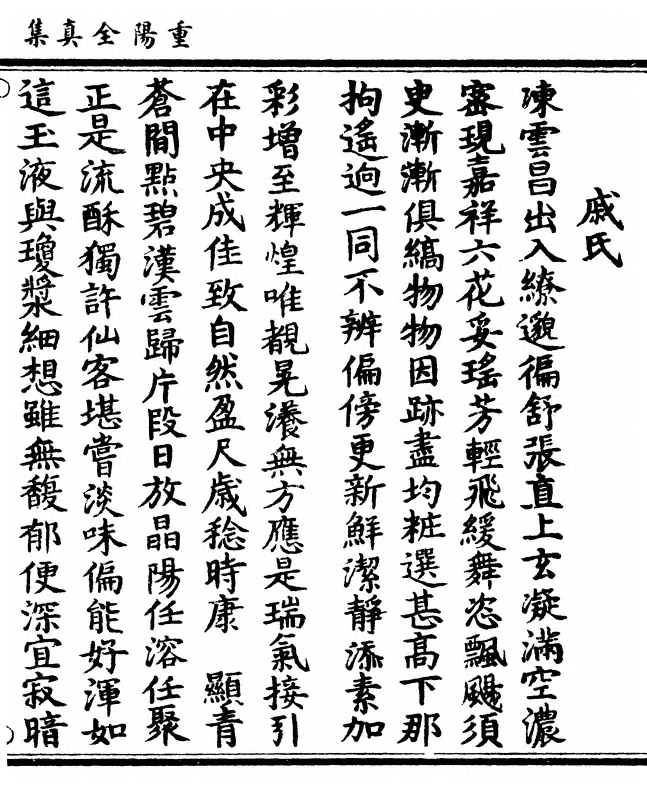 重陽全真集
戚氏
凍雲昌出入繚邈徧舒張直上玄凝滿空濃
密現嘉祥六花妥瑤芳輕飛緩舞恣飄颺須
臾漸漸俱縞物物因跡盡均粧選甚高下那
拘遙逈一同不辨偏傍更新鮮潔靜添素加
彩增至輝煌唯覩晃瀁無方應是瑞氣接引
在中央成佳致自然盈尺歲稔時康　顯青
蒼間點碧漢雲歸片段日放晶陽任溶任聚
正是流酥獨許仙客堪嘗淡味偏能好渾如
這玉液與瓊漿細想雖無馥郁便深宜寂暗